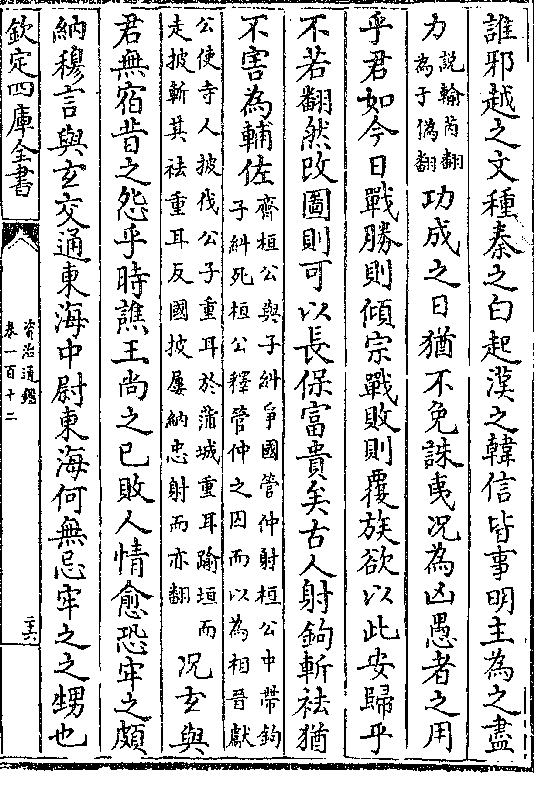 誰邪越之文種秦之白起漢之韓信皆事明主為之盡
力說輸芮翻為于偽翻功成之日猶不免誅夷况為凶愚者之用
乎君如今日戰勝則傾宗戰敗則覆族欲以此安歸乎
不若翻然改圖則可以長保富貴矣古人射鉤斬袪猶
不害為輔佐齊桓公與子糾爭國管仲射桓公中帶鉤子糾死桓公釋管仲之囚而以為相晉獻
公使寺人披伐公子重耳於蒲城重耳踰垣而走披斬其袪重耳反國披屢納忠射而亦翻况玄與
君無宿昔之怨乎時譙王尚之已敗人情愈恐牢之頗
納穆言與玄交通東海中尉東海何無忌牢之之甥也
欽定四庫全書
資治通鑑
卷一百十二
二六